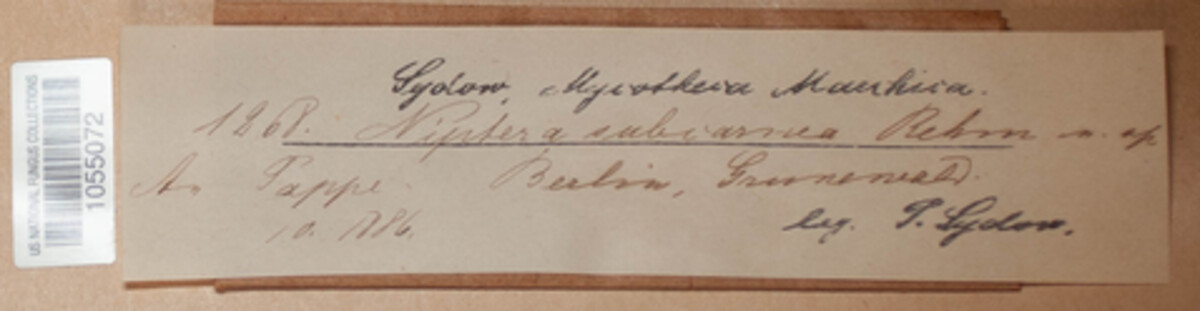 US NATIONAL FUNGUS COLLECTIONS
1055072
Sydow, Mycotheca Marchica.
1268. Niptera subcarnea Rehm n. sp
An Pappe. Berlin, Grunewald.
10. 1886.
leg. P. Sydow.